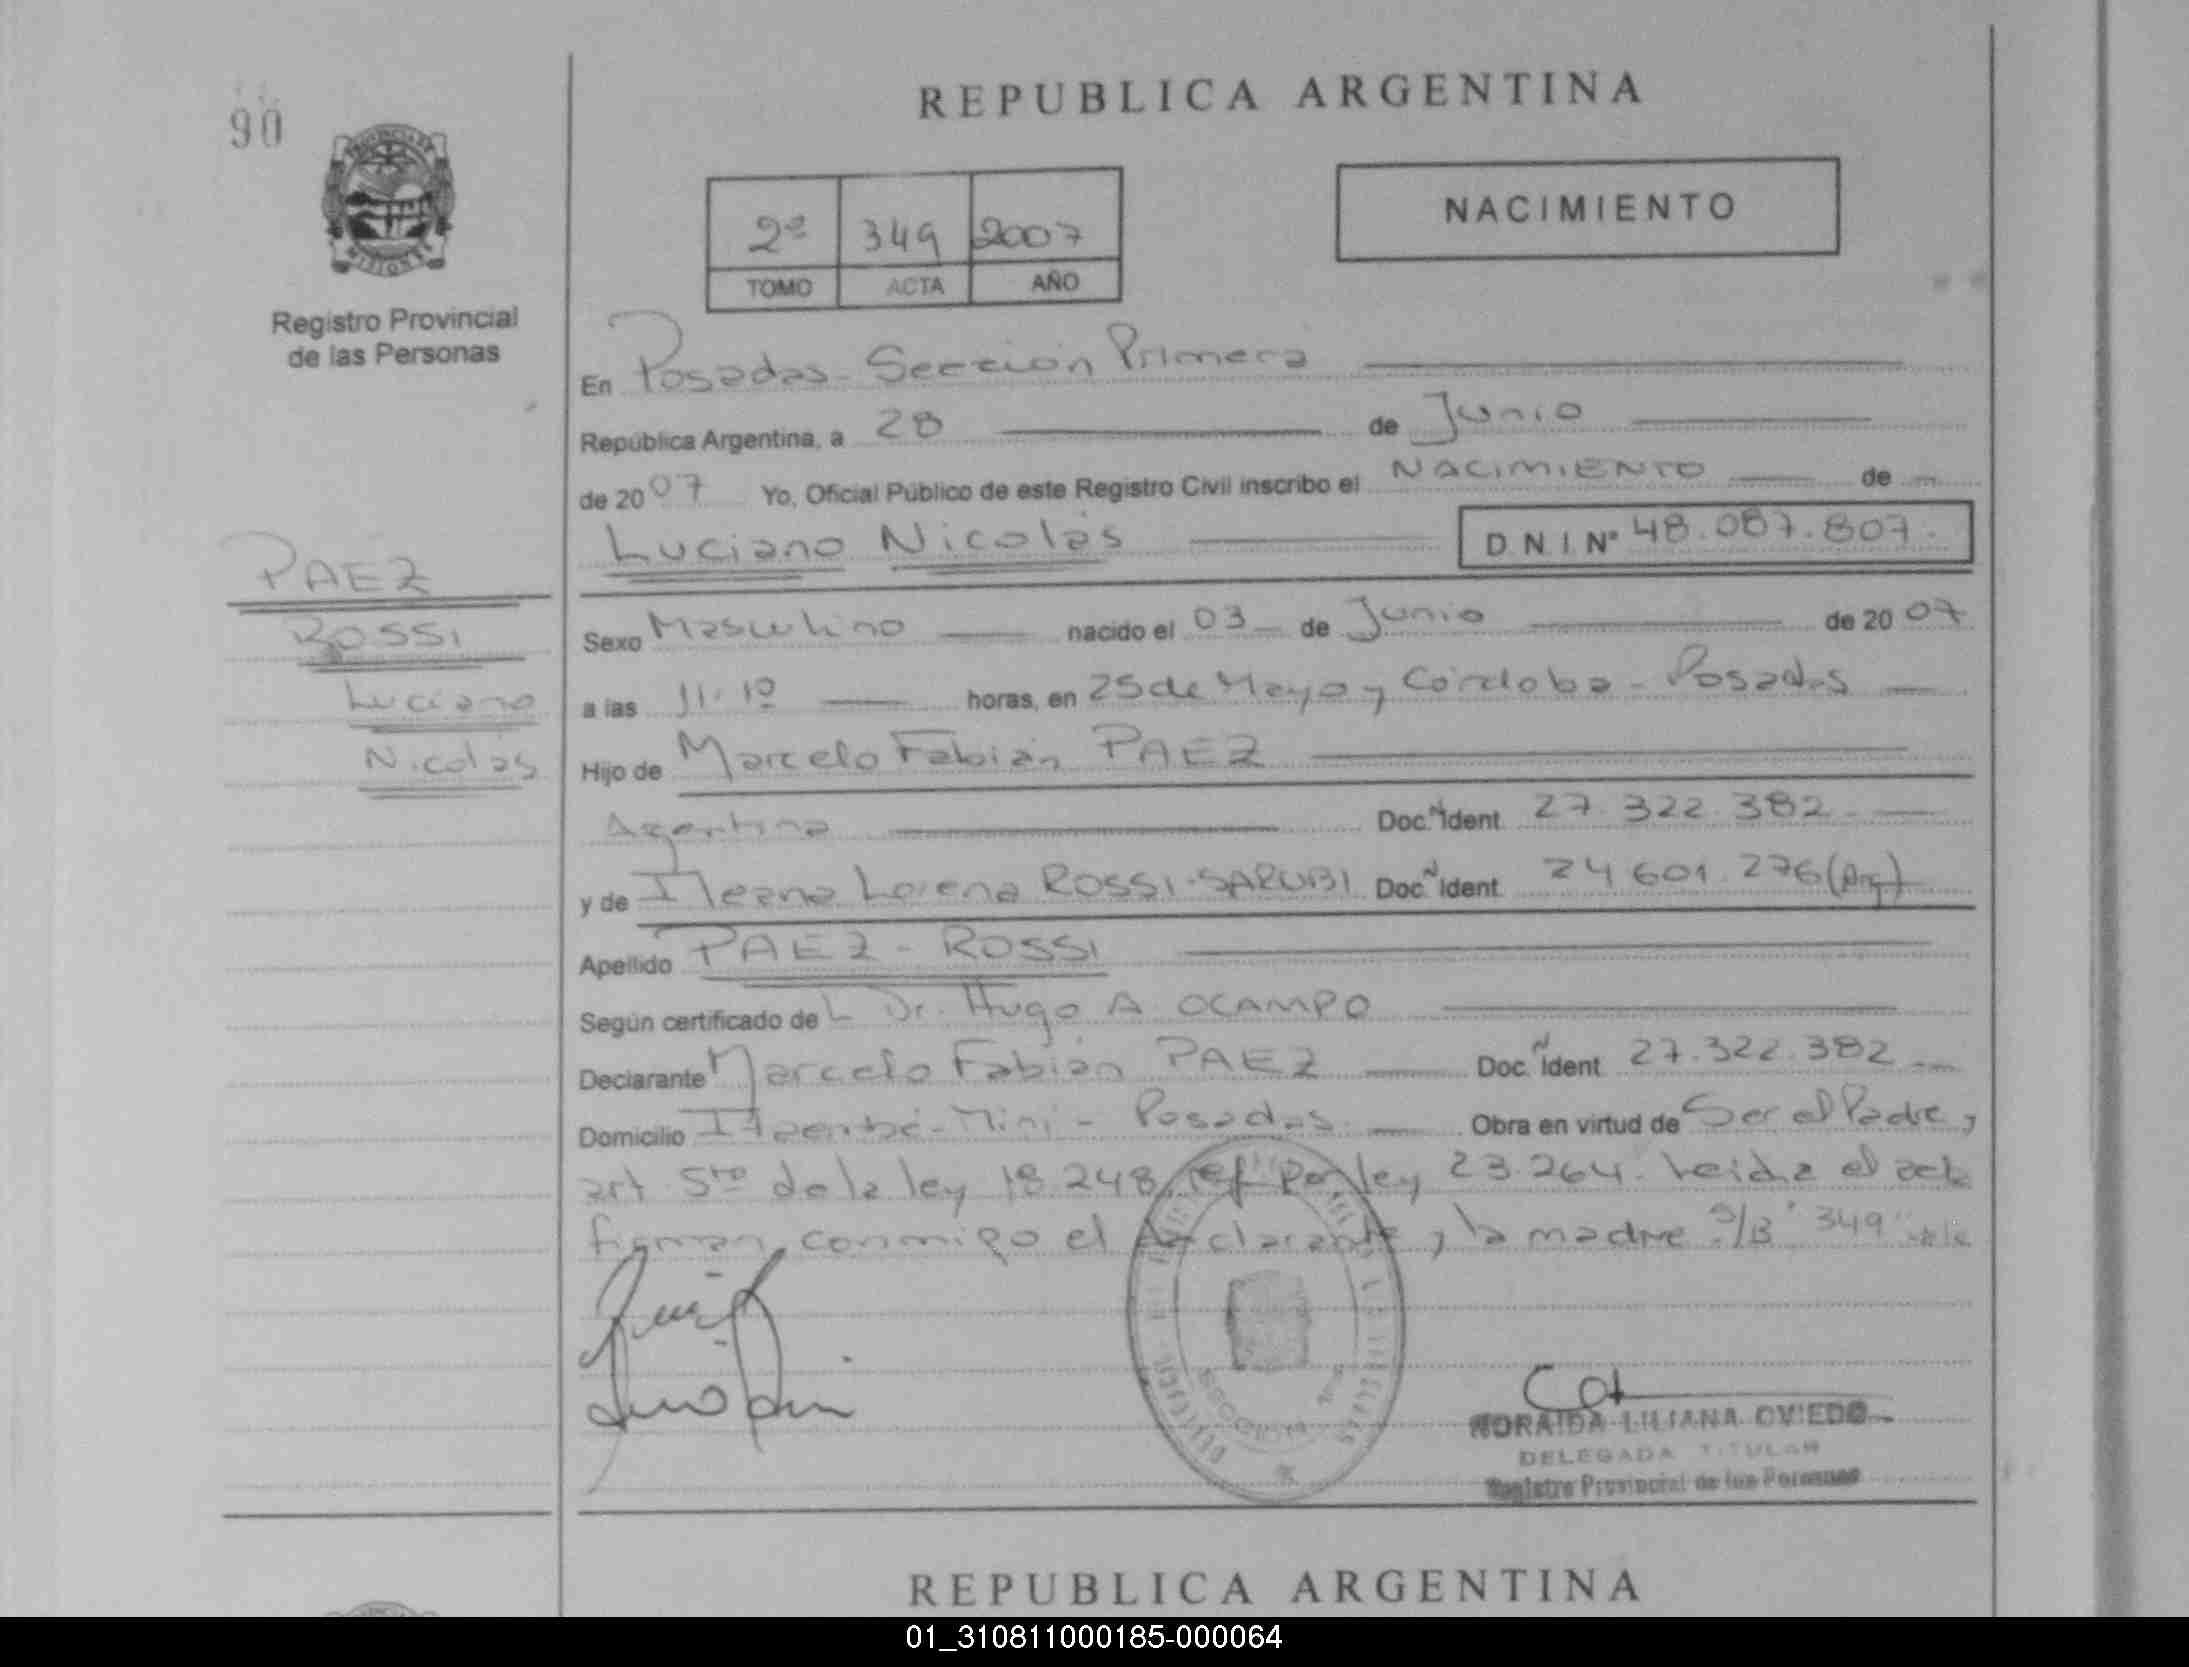 90
REPUBLICA ARGENTINA
PROVINCIA DE
MISIONES
Registro Provincial
de las Personas
2º 349 2007
TOMO ACTA AÑO
NACIMIENTO
En Posadas - Sección Primera
República Argentina, a 28 de Junio
de 2007 Yo, Oficial Público de este Registro Civil inscribo el NACIMIENTO de
Luciano Nicolás D.N.I.Nº 48.087.807.
PAEZ
ROSSI
Luciano
Nicolás
Sexo Masculino nacido el 03 de Junio de 2007
a las 11.10 horas, en 25 de Mayo y Córdoba - Posadas
Hijo de Marcelo Fabián PAEZ
Argentina Doc. Ident. 27.322.382
y de Ileana Lorena ROSSI-SARUBI Doc. Ident. 24 601.276 (Arg)
Apellido PAEZ - ROSSI
Según certificado del Dr. Hugo A. OCAMPO
Declarante Marcelo Fabián PAEZ Doc. Ident. 27.322.382
Domicilio Itaembé-Miní - Posadas Obra en virtud de Ser el Padre y
art 5to de la ley 18.248 ref por ley 23.264. Leida el acta
firman conmigo el declarante y la madre S/B "349" vale
LILIANA OVIEDO
DELEGADA TITULAR
Registro Provincial de las Personas
REPUBLICA ARGENTINA
01_310811000185-000064